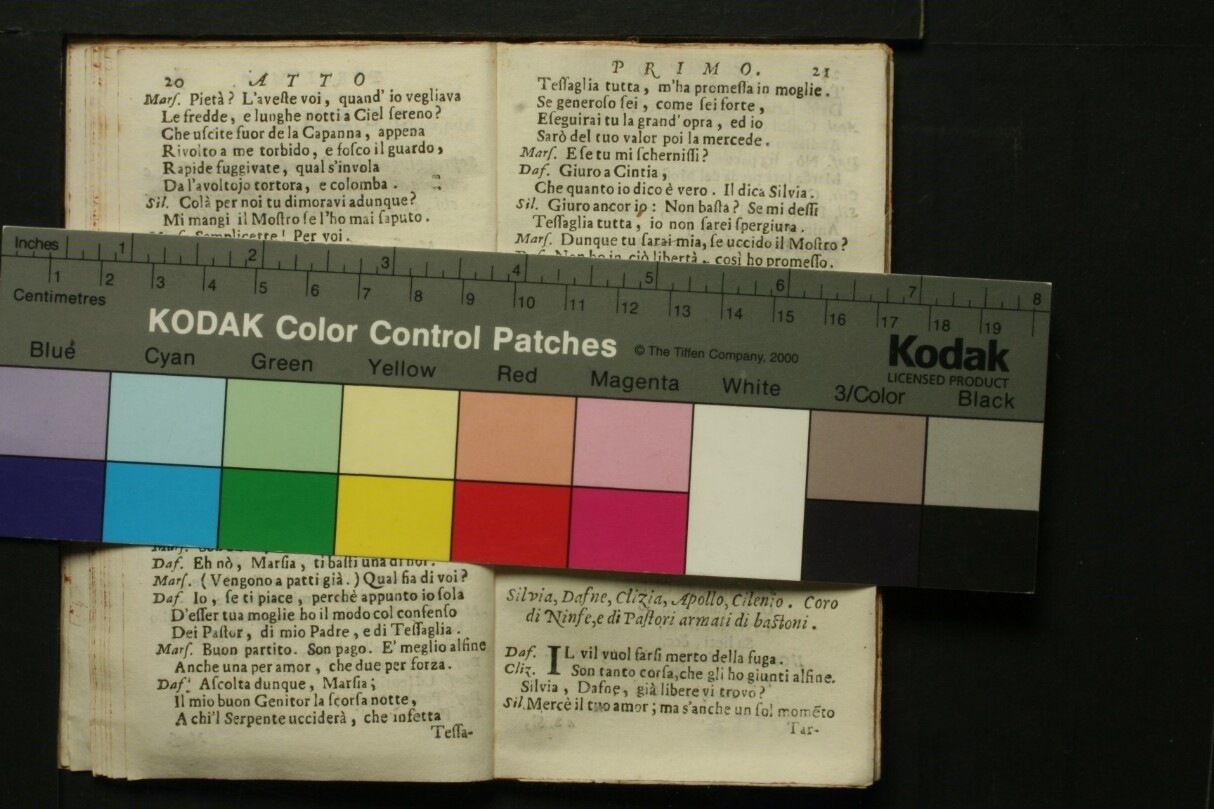 20 ATTO
Marſ. Pietà? L'aveſte voi, quand' io vegliava
Le fredde, e lunghe notti a Ciel ſereno?
Che uſcite fuor de la Capanna, appena
Rivolto a me torbido, e foſco il guardo,
Rapide fuggivate, qual s'invola
Da l'avoltojo tortora, e colomba.
Sil. Colà per noi tu dimoravi adunque?
Mi mangi il Moſtro ſe l'ho mai ſaputo.
Semplicette! Per voi.
Daf. Eh nò, Marſia, ti baſti una di noi.
Marſ. (Vengono a patti già.) Qual fia di voi?
Daf. Io, ſe ti piace, perchè appunto io ſola
D'eſſer tua moglie ho il modo col conſenſo
Dei Paſtor, di mio Padre, e di Teſſaglia.
Marſ. Buon partito. Son pago. E' meglio alfine
Anche una per amor, che due per forza.
Daf. Aſcolta dunque, Marſia;
Il mio buon Genitor la ſcorſa notte,
A chi'l Serpente ucciderà, che infetta
Teſſa-
PRIMO. 21
Teſſaglia tutta, m'ha promeſſa in moglie.
Se generoſo ſei, come ſei forte,
Eſeguirai tu la grand' opra, ed io
Sarò del tuo valor poi la mercede.
Marſ. E ſe tu mi ſcherniſſi?
Daf. Giuro a Cintia,
Che quanto io dico è vero. Il dica Silvia.
Sil. Giuro ancor io: Non baſta? Se mi deſſi
Teſſaglia tutta, io non ſarei ſpergiura.
Marſ. Dunque tu ſarai mia, ſe uccido il Moſtro?
Non ho in ciò libertà. così ho promeſſo.
Silvia, Dafne, Clizia, Apollo, Cilenio. Coro
di Ninfe, e di Paſtori armati di baſtoni.
Daf. IL vil vuol farſi merto della fuga.
Cliz. Son tanto corſa, che gli ho giunti alfine.
Silvia, Dafne, già libere vi trovo?
Sil. Mercè il tuo amor; ma s'anche un ſol momẽto
Tar-
Inches 1 2 3 4 5 6 7 8
Centimetres 1 2 3 4 5 6 7 8 9 10 11 12 13 14 15 16 17 18 19
KODAK Color Control Patches © The Tiffen Company, 2000 Kodak
LICENSED PRODUCT
Blue Cyan Green Yellow Red Magenta White 3/Color Black